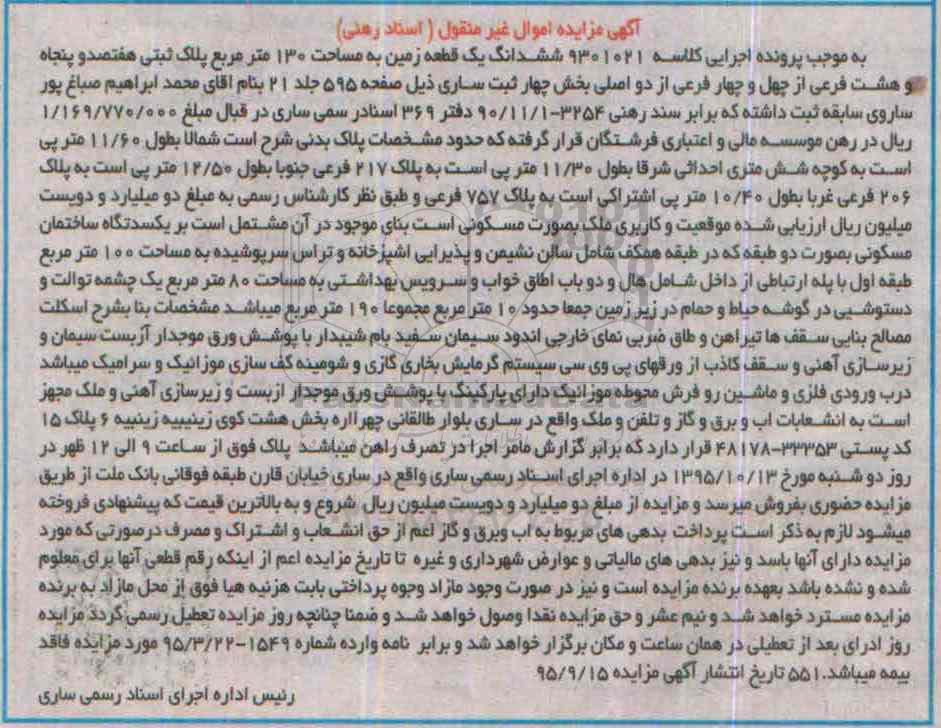 آگهی مزایده اموال غیر منقول ( اسناد رهنی)
به موجب پرونده اجرایی کلاسه ۹۳۰۱۰۲۱ ششدانگ یک قطعه زمین به مساحت ۱۳۰ متر مربع پلاک ثبتی هفتصدو پنجاه
و هشت فرعی از چهل و چهار فرعی از دو اصلی بخش چهار ثبت ساری ذیل صفحه ۵۹۵ جلد ۲۱ بنام اقای محمد ابراهیم صباغ پور
ساروی سابقه ثبت داشته که برابر سند رهنی ۳۲۵۴-۹۰/۱۱/۱ دفتر ۳۶۹ اسنادر سمی ساری در قبال مبلغ ۱/۱۶۹/۷۷۰/۰۰۰
ریال در رهن موسسه مالی و اعتباری فرشتگان قرار گرفته که حدود مشخصات پلاک بدنی شرح است شمالا بطول ۱۱/۶۰ متر پی
است به کوچه شش متری احداثی شرقا بطول ۱۱/۳۰ متر پی است به پلاک ۲۱۷ فرعی جنوبا بطول ۱۲/۵۰ متر پی است به پلاک
۲۰۶ فرعی غربا بطول ۱۰/۴۰ متر پی اشتراکی است به پلاک ۷۵۷ فرعی و طبق نظر کارشناس رسمی به مبلغ دو میلیارد و دویست
میلیون ریال ارزیابی شده موقعیت و کاربری ملک بصورت مسکونی است بنای موجود در آن مشتمل است بر یکسدتگاه ساختمان
مسکونی بصورت دو طبقه که در طبقه همکف شامل سالن نشیمن و پذیرایی اشپزخانه و تراس سرپوشیده به مساحت ۱۰۰ متر مربع
طبقه اول با پله ارتباطی از داخل شامل هال و دو باب اطاق خواب و سرویس بهداشتی به مساحت ۸۰ متر مربع یک چشمه توالت و
دستوشیی در گوشه حیاط و حمام در زیر زمین جمعا حدود ۱۰ متر مربع مجموعا ۱۹۰ متر مربع میباشد مشخصات بنا بشرح اسکلت
مصالح بنایی سقف ها تیر اهن و طاق ضربی نمای خارجی اندود سیمان سفید بام شیبدار با پوشش ورق موجدار آزبست سیمان و
زیرسازی آهنی و سقف کاذب از ورقهای پی وی سی سیستم گرمایش بخاری گازی و شومینه کف سازی موزائیک و سرامیک میباشد
درب ورودی فلزی و ماشین رو فرش محوطه موزائیک دارای پارکینگ با پوشش ورق موجدار ازبست و زیرسازی آهنی و ملک مجهز
است به انشعابات اب و برق و گاز و تلفن و ملک واقع در ساری بلوار طالقانی چهر ااره بخش هشت کوی زینبییه زینبیه ۶ پلاک ۱۵
کد پستی ۳۳۳۵۳-۴۸۱۷۸ قرار دارد که برابر گزارش مامر اجرا در تصرف راهن میباشد پلاک فوق از ساعت ۹ الی ۱۲ ظهر در
روز دو شنبه مورخ ۱۳۹۵/۱۰/۱۳ در اداره اجرای اسناد رسمی ساری واقع در ساری خیابان قارن طبقه فوقانی بانک ملت از طریق
مزایده حضوری بفروش میرسد و مزایده از مبلغ دو میلیارد و دویست میلیون ریال شروع و به بالاترین قیمت که پیشنهادی فروخته
میشود لازم به ذکر است پرداخت بدهی های مربوط به اب وبرق و گاز اعم از حق انشعاب و اشتراک و مصرف درصورتی که مورد
مزایده دارای آنها باسد و نیز بدهی های مالیاتی و عوارض شهرداری و غیره تا تاریخ مزایده اعم از اینکه رقم قطعی آنها برای معلوم
شده و نشده باشد بعهده برنده مزایده است و نیز در صورت وجود مازاد وجوه پرداختی بابت هزنیه هیا فوق از محل مازاد به برنده
مزایده مسترد خواهد شد و نیم عشر و حق مزایده نقدا وصول خواهد شد و ضمنا چنانچه روز مزایده تعطیل رسمی گردد مزایده
روز ادرای بعد از تعطیلی در همان ساعت و مکان برگزار خواهد شد و برابر نامه وارده شماره ۱۵۴۹-۹۵/۳/۲۲ مورد مزایده فاقد
بیمه میباشد.۵۵۱ تاریخ انتشار آگهی مزایده ۹۵/۹/۱۵
رئیس اداره اجرای اسناد رسمی ساری